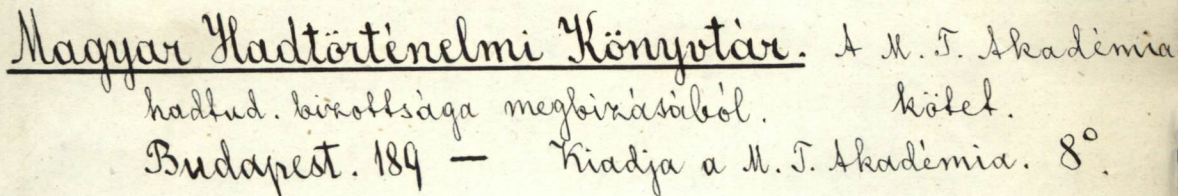 Magyar Hadtörténelmi Könyvtár. A M. T. Akadémia
hadtud. bizottsága megbizásából. kötet.
Budapest. 189 — Kiadja a M. T. Akadémia. 8°.